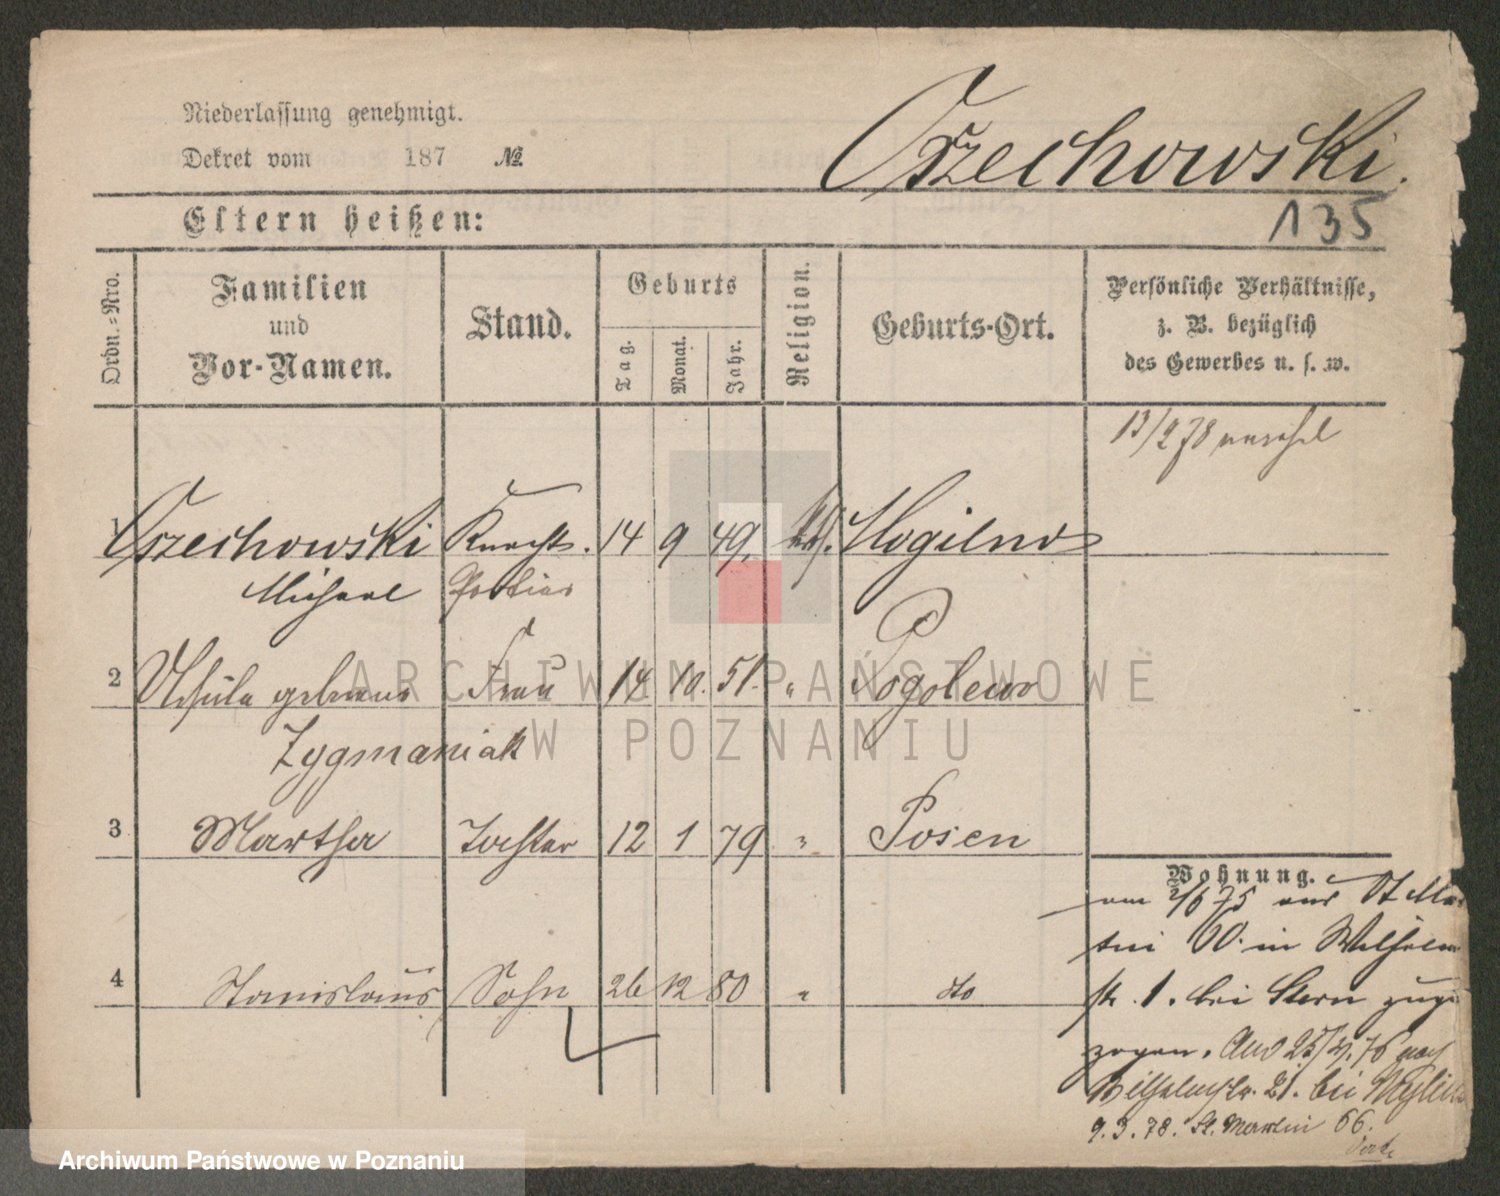 Niederlassung genehmigt.
Dekret vom 187 №
Orzechowski.
Eltern heißen:
135
Ordn.=Nro.
Familien
und
Vor-Namen.
Stand.
Geburts
Tag.
Monat.
Jahr.
Religion.
Geburts-Ort.
Persönliche Verhältnisse,
z. B. bezüglich
des Gewerbes u. s. w.
13/2 78
1 Orzechowski Knecht. 14 9 49. kth. Mogilno
Michael
2 Ursula geborene Frau 14 10. 51. " Pogolewo
Zygmaniak
3 Martha Tochter 12 1 79 " Posen
Wohnung.
am 2/6 75 aus St Mar
tin 60. in Wilhelm
4 Stanislaus Sohn 26 12 80 " dto
str. 1. bei Stern zuge
zogen. 25/4. 76 nach
Wilhelmstr. 21. bei
9.3.78. St. Martin 66.
ARCHIWUM PAŃSTWOWE
W POZNANIU
Archiwum Państwowe w Poznaniu